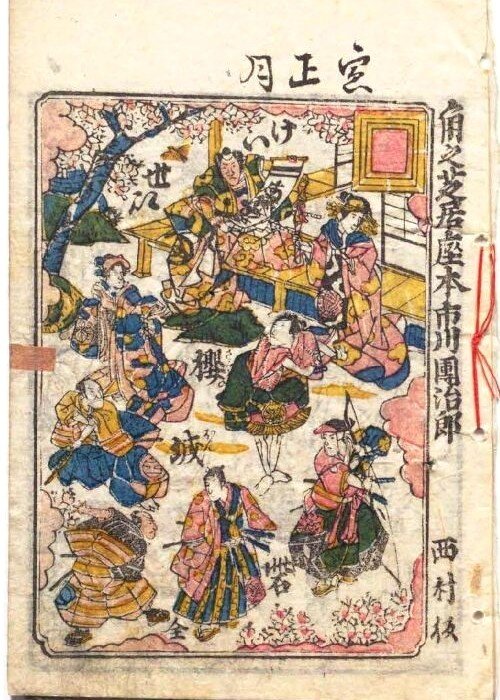 寅正月
角之芝居座本市川團治郎
西村板
けい
世以
櫻
城
全